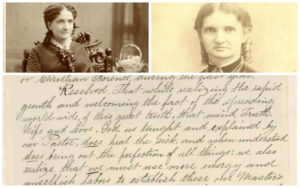 or Christian Science, during the past year.
Resolved, That while realizing the rapid
growth and welcoming the fact of the spreading
world wide, of this great truth, that mind, truth,
Life and Love, God, as taught and explained by
our Pastor, does heal the sick, and when understood
does bring out the perfection of all things; we also
realize that we must use more energy and
unselfish labor to establish these our Master's